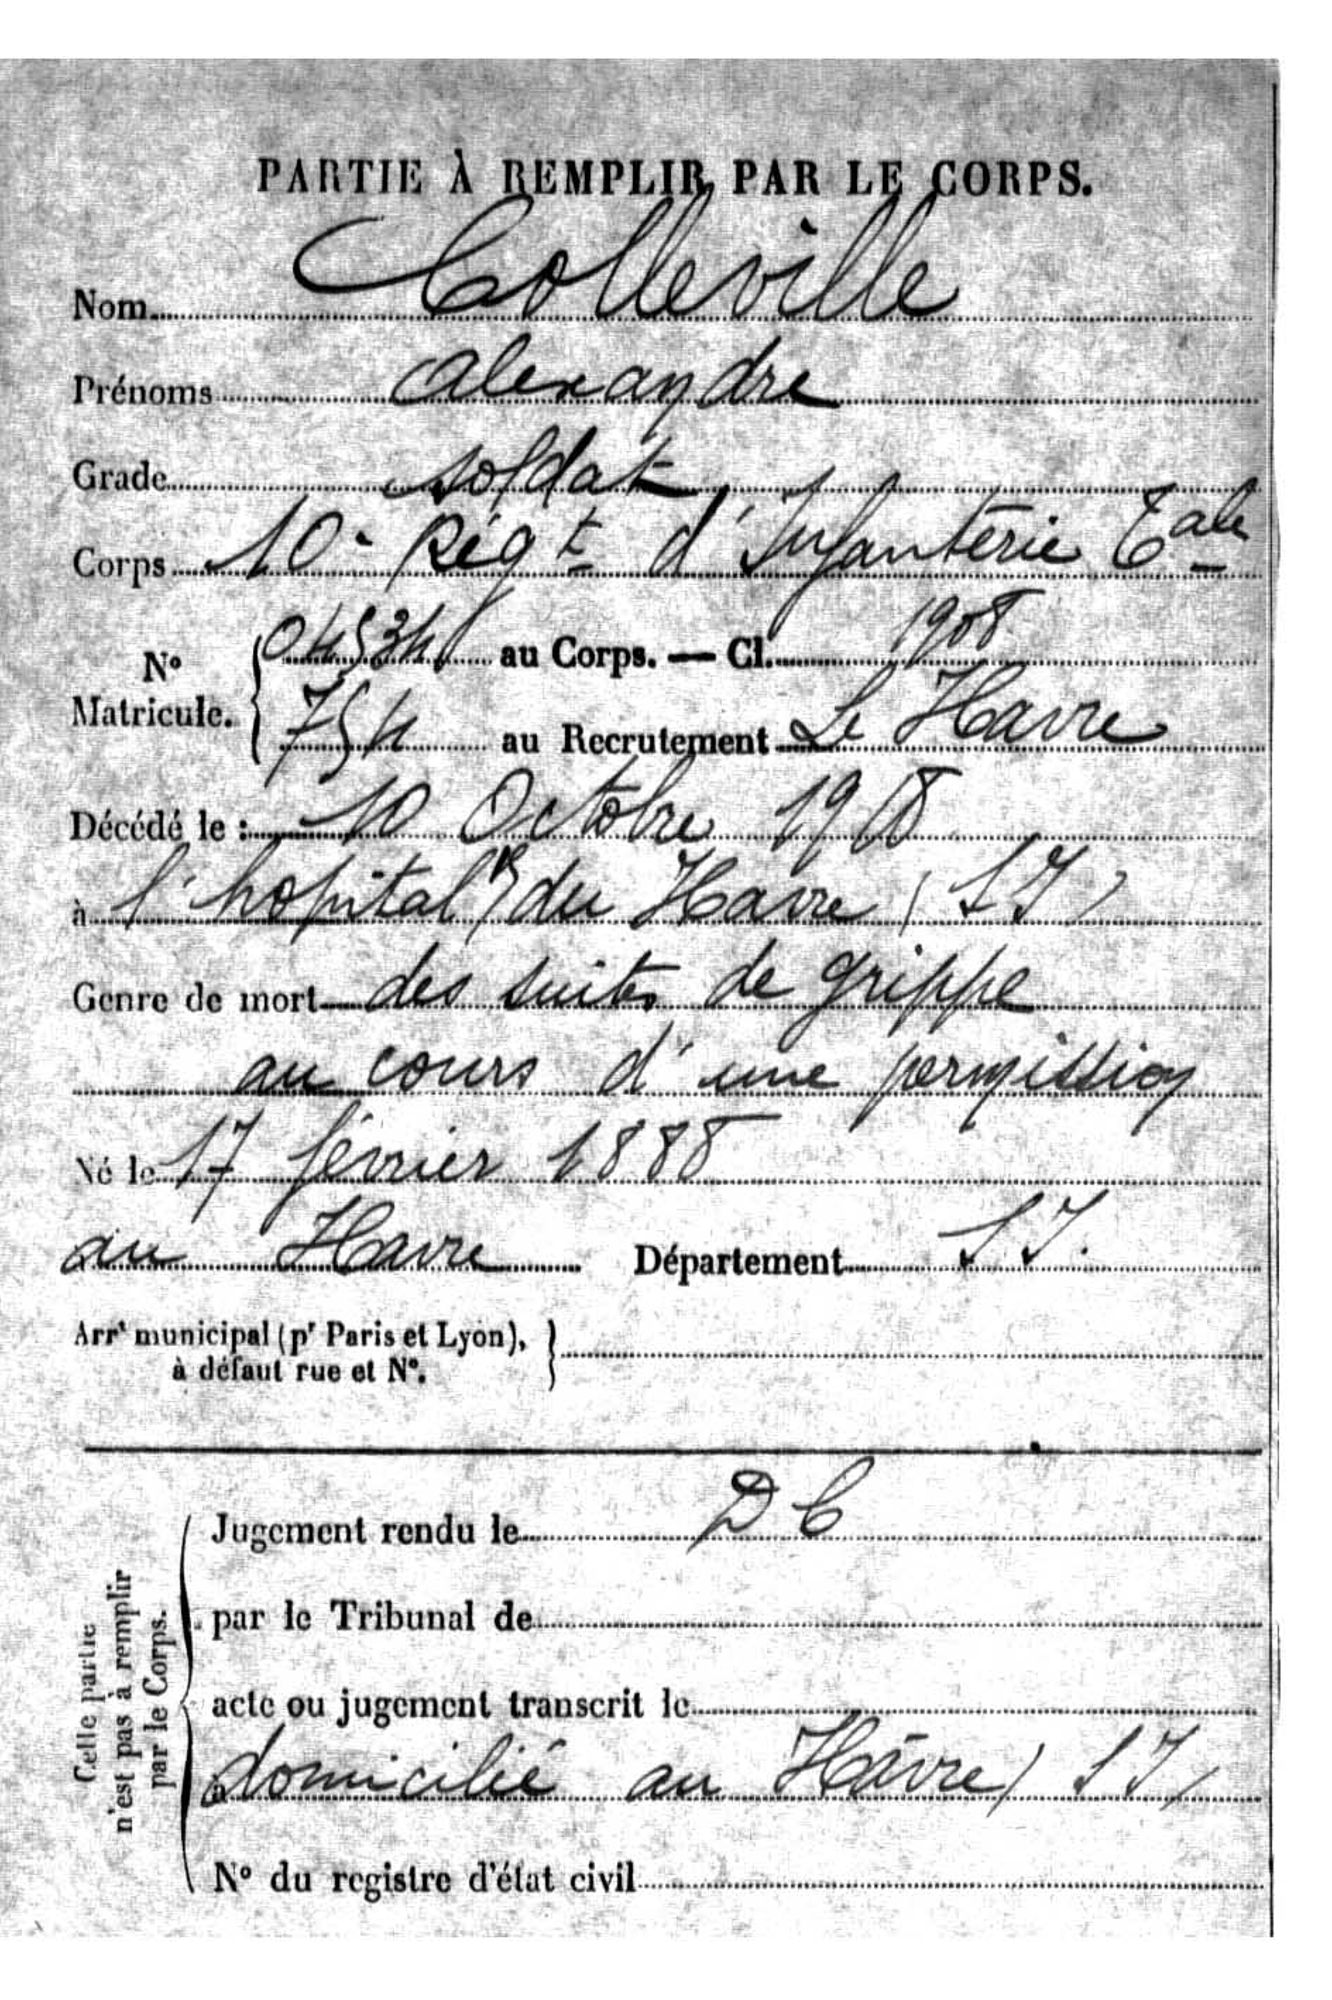 PARTIE À REMPLIR PAR LE CORPS.
Nom Colleville
Prénoms Alexandre
Grade soldat
Corps 10e Régt d'Infanterie Tale
N° Matricule. 04534 au Corps. — Cl. 1908
754 au Recrutement Le Havre
Décédé le : 10 Octobre 1918
à l'hopital du Havre (SI)
Genre de mort des suites de grippe
au cours d'une permission
Né le 17 février 1888
au Havre Département SI.
Arrt municipal (pr Paris et Lyon),
à défaut rue et N°.
Cette partie
n'est pas à remplir
par le Corps.
Jugement rendu le DC
par le Tribunal de
acte ou jugement transcrit le
à domicilié au Hâvre (SI)
N° du registre d'état civil